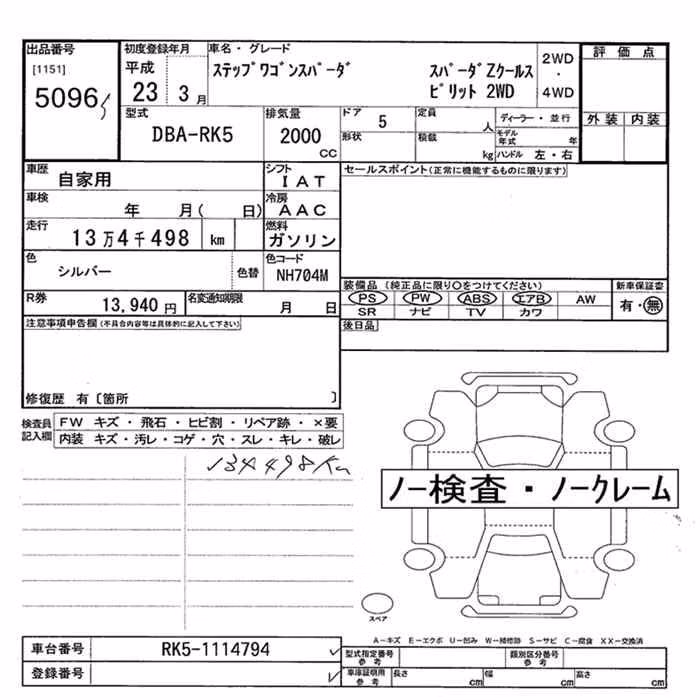 出品番号 初度登録年月 車名・グレード 評価点
[1151] 平成 ステップワゴンスパーダ スパーダZクールス 2WD
5096 23 3月 ピリット 2WD ・ 4WD
型式 排気量 ドア 5 定員 人 ディーラー・並行 外装 内装
DBA-RK5 2000 CC 形状 積載 kg モデル年式 年
ハンドル 左・右
車歴 自家用 シフト IAT セールスポイント(正常に機能するものに限ります)
車検 年 月( 日) 冷房 AAC
走行 13万4千498 km 燃料 ガソリン
色 シルバー 色替 色コード NH704M 装備品(純正品に限り○をつけてください) 新車保証書
R券 13,940円 名変通知期限 月 日 PS PW ABS エアB AW 有・無
SR ナビ TV カワ
注意事項申告欄(不具合内容等は具体的に記入して下さい) 後日品
修復歴 有〔箇所 〕
検査員記入欄 FW キズ・飛石・ヒビ割・リペア跡・×要
内装 キズ・汚レ・コゲ・穴・スレ・キレ・破レ
134498Km
ノー検査・ノークレーム
スペア
A-キズ E-エクボ U-凹み W-補修跡 S-サビ C-腐食 XX-交換済
車台番号 RK5-1114794 型式指定番号 参考 類別区分番号 参考
登録番号 車庫証明用 参考 長さ cm 幅 cm 高さ cm